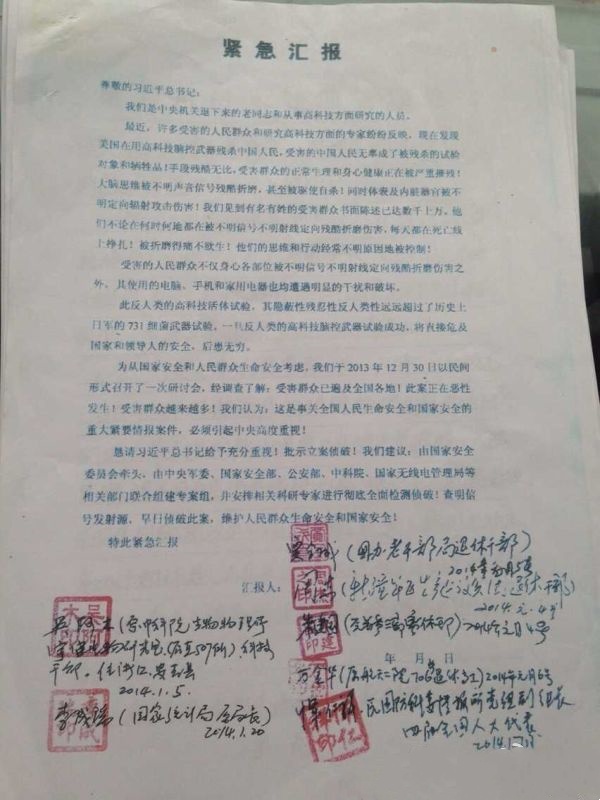 紧急汇报
尊敬的习近平总书记：
我们是中央机关退下来的老同志和从事高科技方面研究的人员。
最近，许多受害的人民群众和研究高科技方面的专家纷纷反映，现在发现
美国在用高科技脑控武器残杀中国人民，受害的中国人民无辜成了被残杀的试验
对象和牺牲品！手段残酷无比，受害群众的正常生理和身心健康正在被严重摧残！
大脑思维被不明声音信号残酷折磨，甚至被驱使自杀！同时体表及内脏器官被不
明定向辐射攻击伤害！我们见到有名有姓的受害群众书面陈述已达数千上万，他
们不论在何时何地都在被不明信号不明射线定向残酷折磨伤害，每天都在死亡线
上挣扎！被折磨得痛不欲生！他们的思维和行动经常不明原因地被控制！
受害的人民群众不仅身心各部位被不明信号不明射线定向残酷折磨伤害之
外，其使用的电脑、手机和家用电器也均遭遇明显的干扰和破坏。
此反人类的高科技活体试验，其隐蔽性残忍性反人类性远远超过了历史上
日军的731细菌武器试验，一旦反人类的高科技脑控武器试验成功，将直接危及
国家和领导人的安全，后患无穷。
为从国家安全和人民群众生命安全考虑，我们于2013年12月30日以民间
形式召开了一次研讨会，经调查了解：受害群众已遍及全国各地！此案正在恶性
发生！受害群众越来越多！我们认为：这是事关全国人民生命安全和国家安全的
重大紧要情报案件，必须引起中央高度重视！
恳请习近平总书记给予充分重视！批示立案侦破！我们建议：由国家安全
委员会牵头，由中央军委、国家安全部、公安部、中科院、国家无线电管理局等
相关部门联合组建专案组，并安排相关科研专家进行彻底全面检测侦破！查明信
号发射源，早日侦破此案，维护人民群众生命安全和国家安全！
特此紧急汇报
(国办老干部局退休干部)
2014年元月5号
汇报人：
2014.元.4号
2014年元月4号
年 月 日
万金华(原航天二院706退休高工)2014年元月6号
四届全国人大代表
2014.1.5.
李成瑞(国家统计局原局长)
2014.1.20